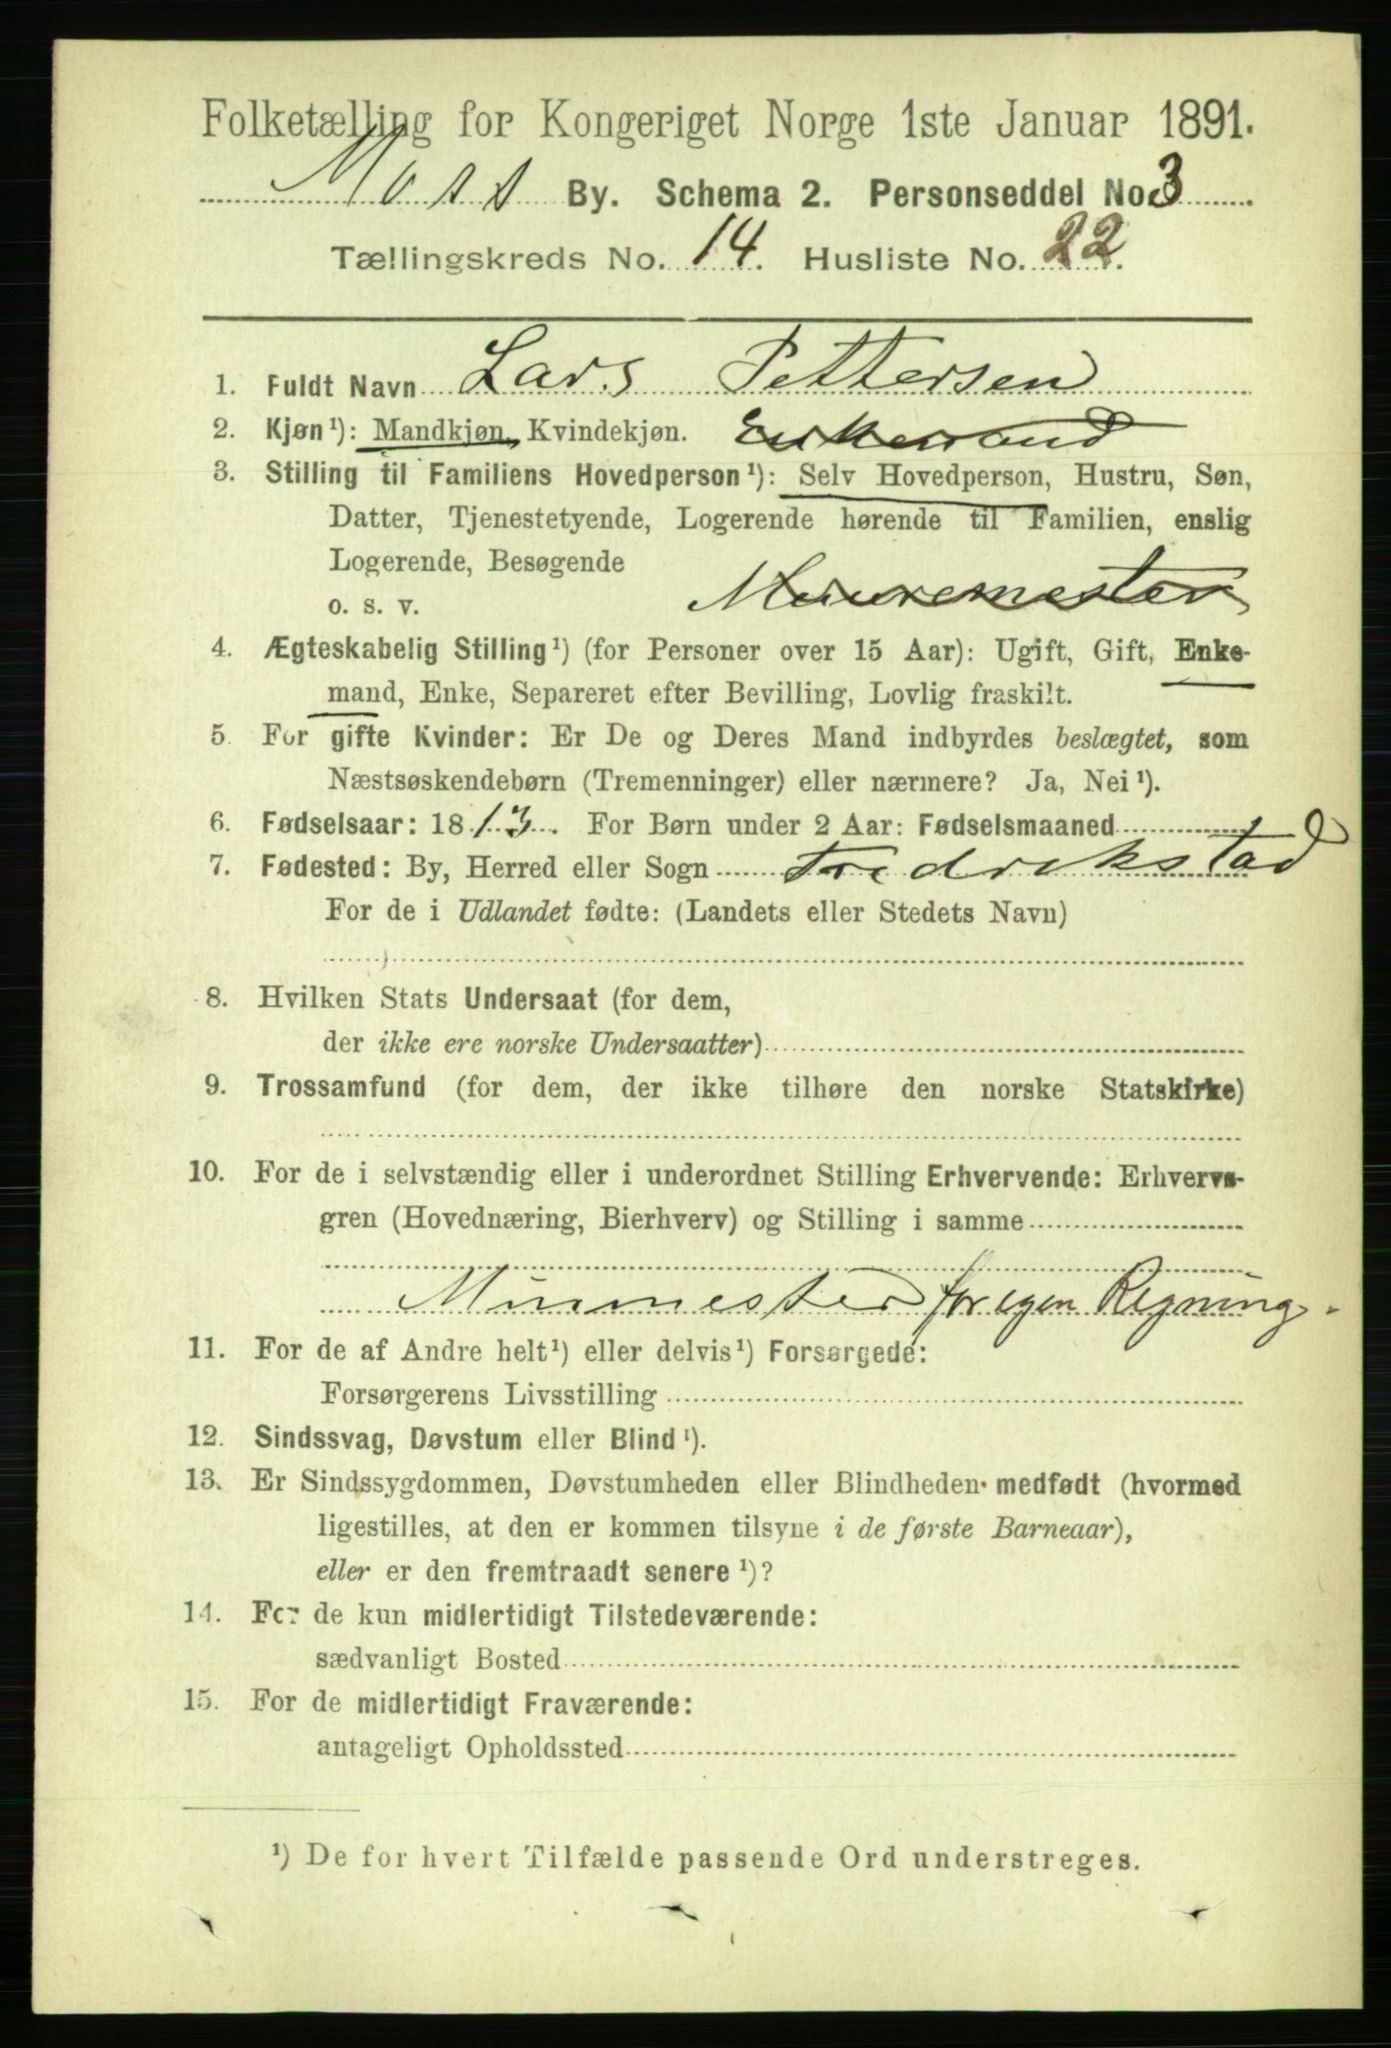 Folketælling for Kongeriget Norge 1ste Januar 1891.
Moss By. Schema 2. Personseddel No. 3
Tællingskreds No. 14. Husliste No. 22.
1. Fuldt Navn Lars Pettersen
2. Kjøn¹): Mandkjøn, Kvindekjøn. Enkemand
3. Stilling til Familiens Hovedperson¹): Selv Hovedperson, Hustru, Søn,
Datter, Tjenestetyende, Logerende hørende til Familien, enslig
Logerende, Besøgende
o. s. v. Muuremester
4. Ægteskabelig Stilling¹) (for Personer over 15 Aar): Ugift, Gift, Enke-
mand, Enke, Separeret efter Bevilling, Lovlig fraskilt.
5. For gifte Kvinder: Er De og Deres Mand indbyrdes beslægtet, som
Næstsøskendebørn (Tremenninger) eller nærmere? Ja, Nei¹).
6. Fødselsaar: 1813. For Børn under 2 Aar: Fødselsmaaned
7. Fødested: By, Herred eller Sogn Fredrekstad
For de i Udlandet fødte: (Landets eller Stedets Navn)
8. Hvilken Stats Undersaat (for dem,
der ikke ere norske Undersaatter)
9. Trossamfund (for dem, der ikke tilhøre den norske Statskirke)
10. For de i selvstændig eller i underordnet Stilling Erhvervende: Erhvervs-
gren (Hovednæring, Bierhverv) og Stilling i samme
Murmester for egen Regning.
11. For de af Andre helt¹) eller delvis¹) Forsørgede:
Forsørgerens Livsstilling
12. Sindssvag, Døvstum eller Blind¹).
13. Er Sindssygdommen, Døvstumheden eller Blindheden medfødt (hvormed
ligestilles, at den er kommen tilsyne i de første Barneaar),
eller er den fremtraadt senere¹)?
14. For de kun midlertidigt Tilstedeværende:
sædvanligt Bosted
15. For de midlertidigt Fraværende:
antageligt Opholdssted
¹) De for hvert Tilfælde passende Ord understreges.